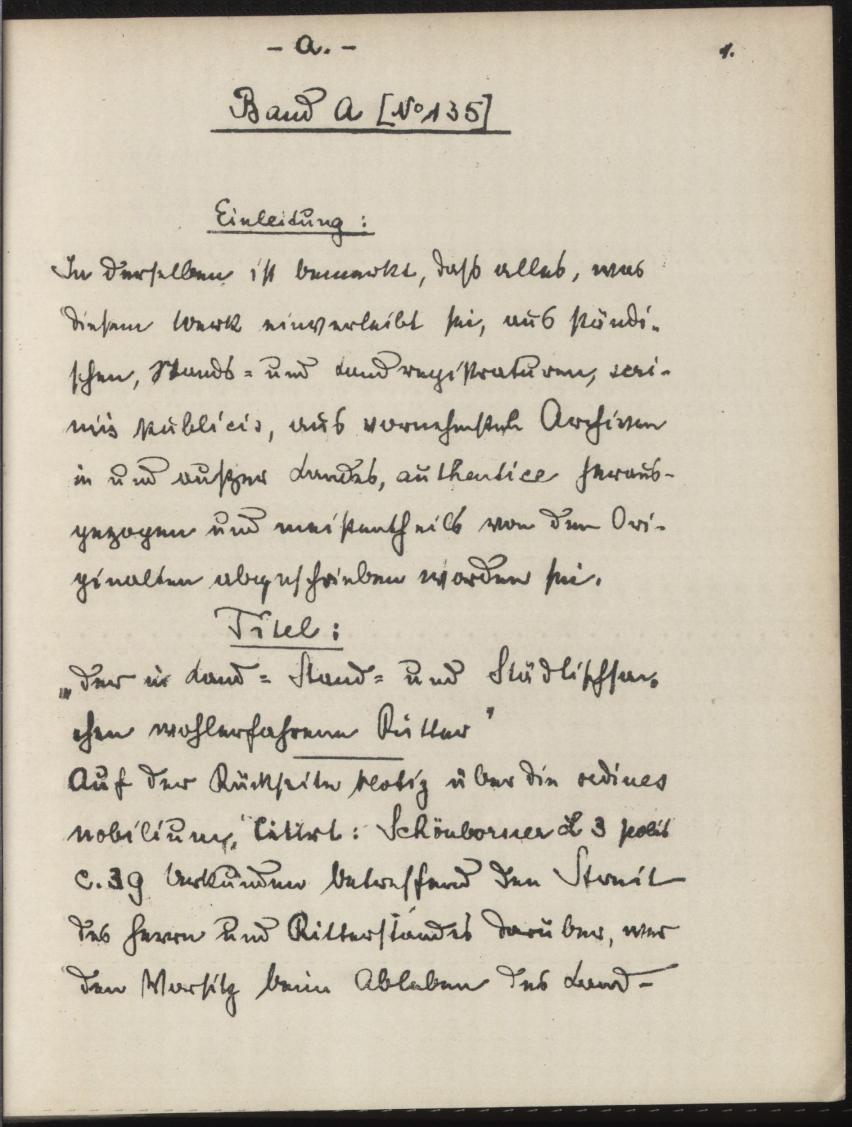 - a. -
1.
Band A [No 135]
Einleitung:
In derselben ist bemerkt, daß alles, was
diesem Werk einverleibt sei, aus ständi-
schen, Stands- und Landregistraturen, scri-
niis publicis, aus vornehmsten Archiven
in und außer Landes, authentice heraus-
gezogen und meistentheils von den Ori-
ginalien abgeschrieben worden sei.
Titel:
„Der in Land- Stand- und Städtischsa-
chen wohlerfahrene Ritter"
Auf der Rückseite Notiz über die ordines
nobilium, Citirt: Schönborner L 3 polit
c. 39 Urkunden betreffend den Streit
des Herrn und Ritterstandes darüber, wer
den Vorsitz beim Ableben des Land-